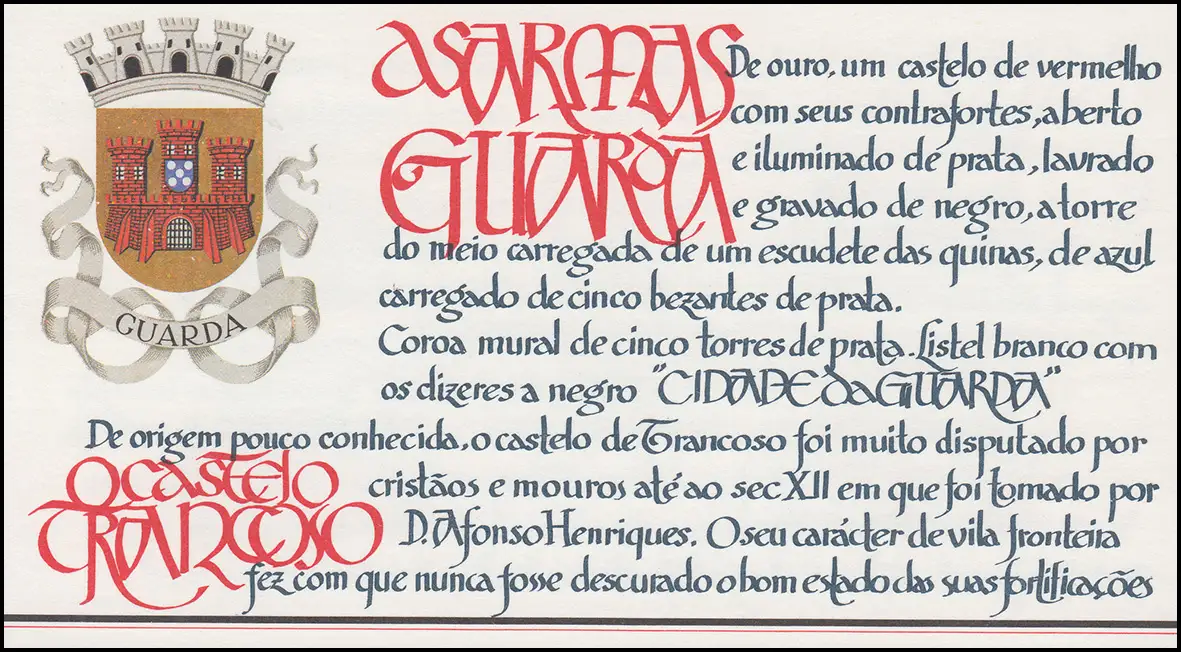 GUARDA
AS ARMAS
GUARDA
De ouro, um castelo de vermelho
com seus contrafortes, aberto
e iluminado de prata, lavrado
e gravado de negro, a torre
do meio carregada de um escudete das quinas, de azul
carregado de cinco bezantes de prata.
Coroa mural de cinco torres de prata. Listel branco com
os dizeres a negro "CIDADE da GUARDA"
O CASTELO
TRANCOSO
De origem pouco conhecida, o castelo de Trancoso foi muito disputado por
cristãos e mouros até ao sec XII em que foi tomado por
D. Afonso Henriques. O seu carácter de vila fronteira
fez com que nunca fosse descurado o bom estado das suas fortificações